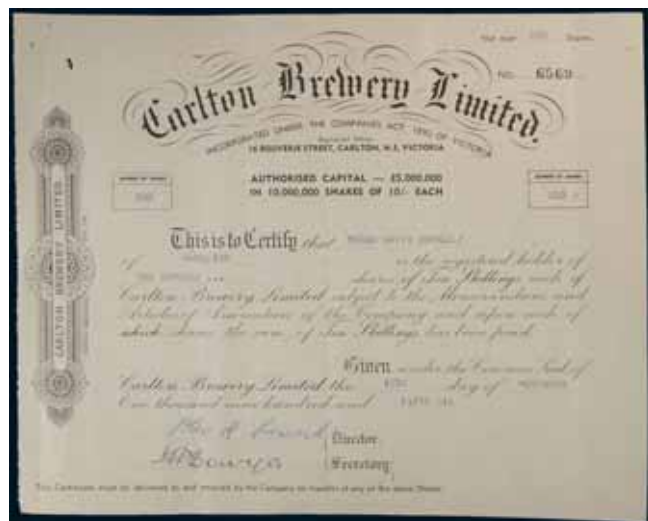 No. 6569
Carlton Brewery Limited.
INCORPORATED UNDER THE COMPANIES ACT 1890 OF VICTORIA
16 BOUVERIE STREET, CARLTON, N.3, VICTORIA
AUTHORISED CAPITAL — £5,000,000
IN 10,000,000 SHARES OF 10/- EACH
CARLTON BREWERY LIMITED
This is to Certify that
of is the registered holder of
shares of Ten Shillings each of
Carlton Brewery Limited subject to the Memorandum and
Articles of Association of the Company and upon each of
which shares the sum of Ten Shillings has been paid
Given under the Common Seal of
Carlton Brewery Limited the day of
One thousand nine hundred and
Director
Secretary
This Certificate must be delivered to and retained by the Company on transfer of any of the above Shares